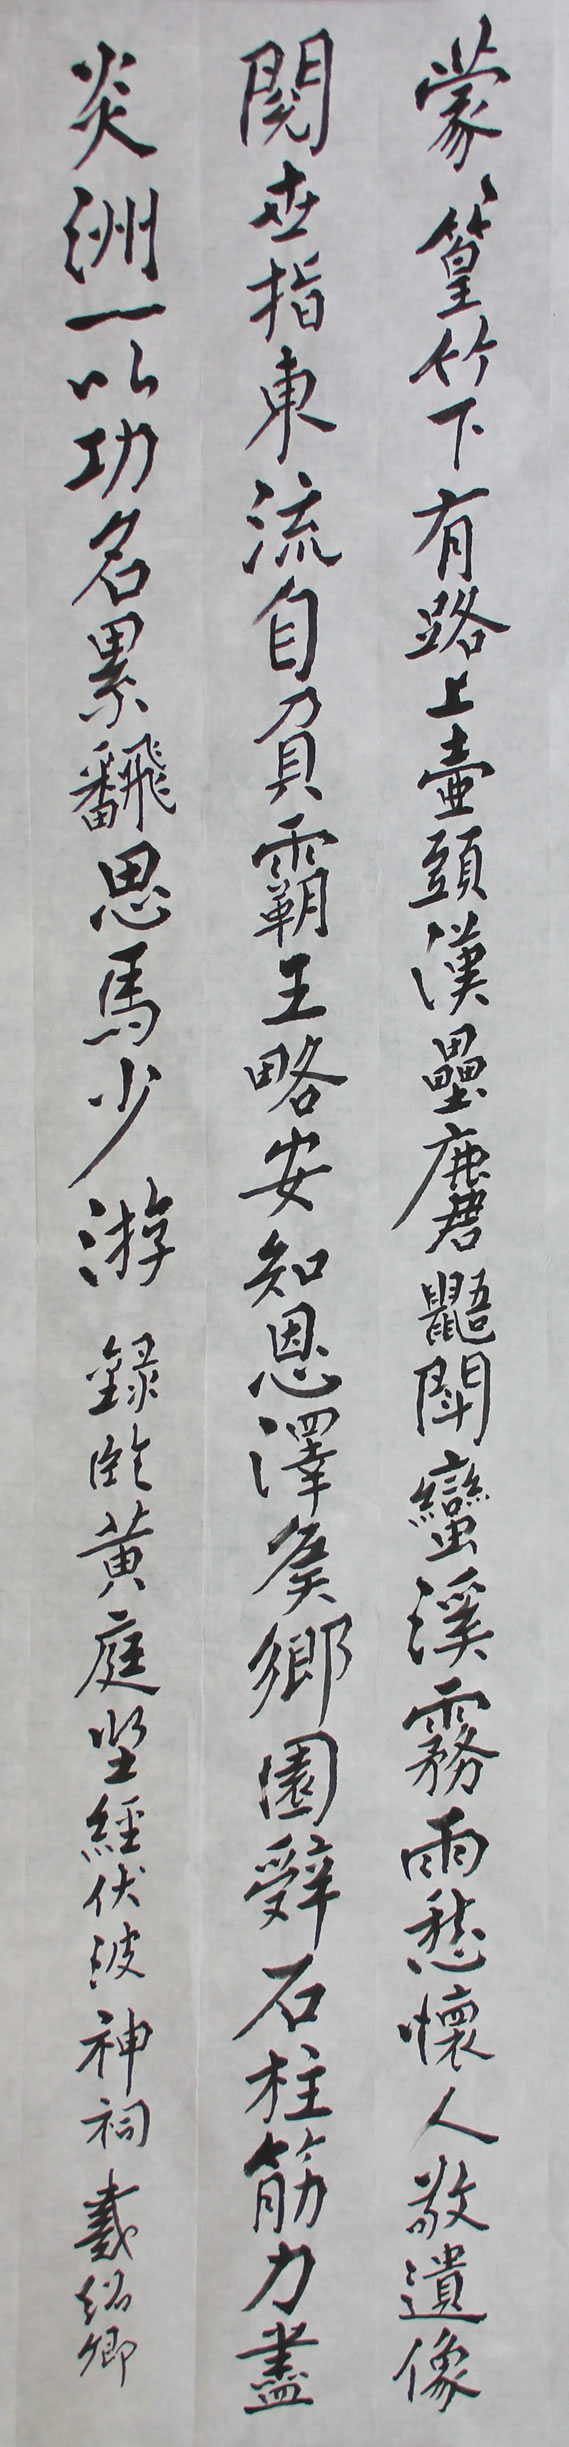 蒙〻篁竹下有路上壺頭漢壘麏鼯鬪蠻溪霧雨愁懷人敬遺像
閱世指東流自負霸王略安知恩澤矦鄉園辤石柱筋力盡
炎洲一以功名累翻思馬少游 錄臨黄庭坚經伏波神祠 戴紹卿